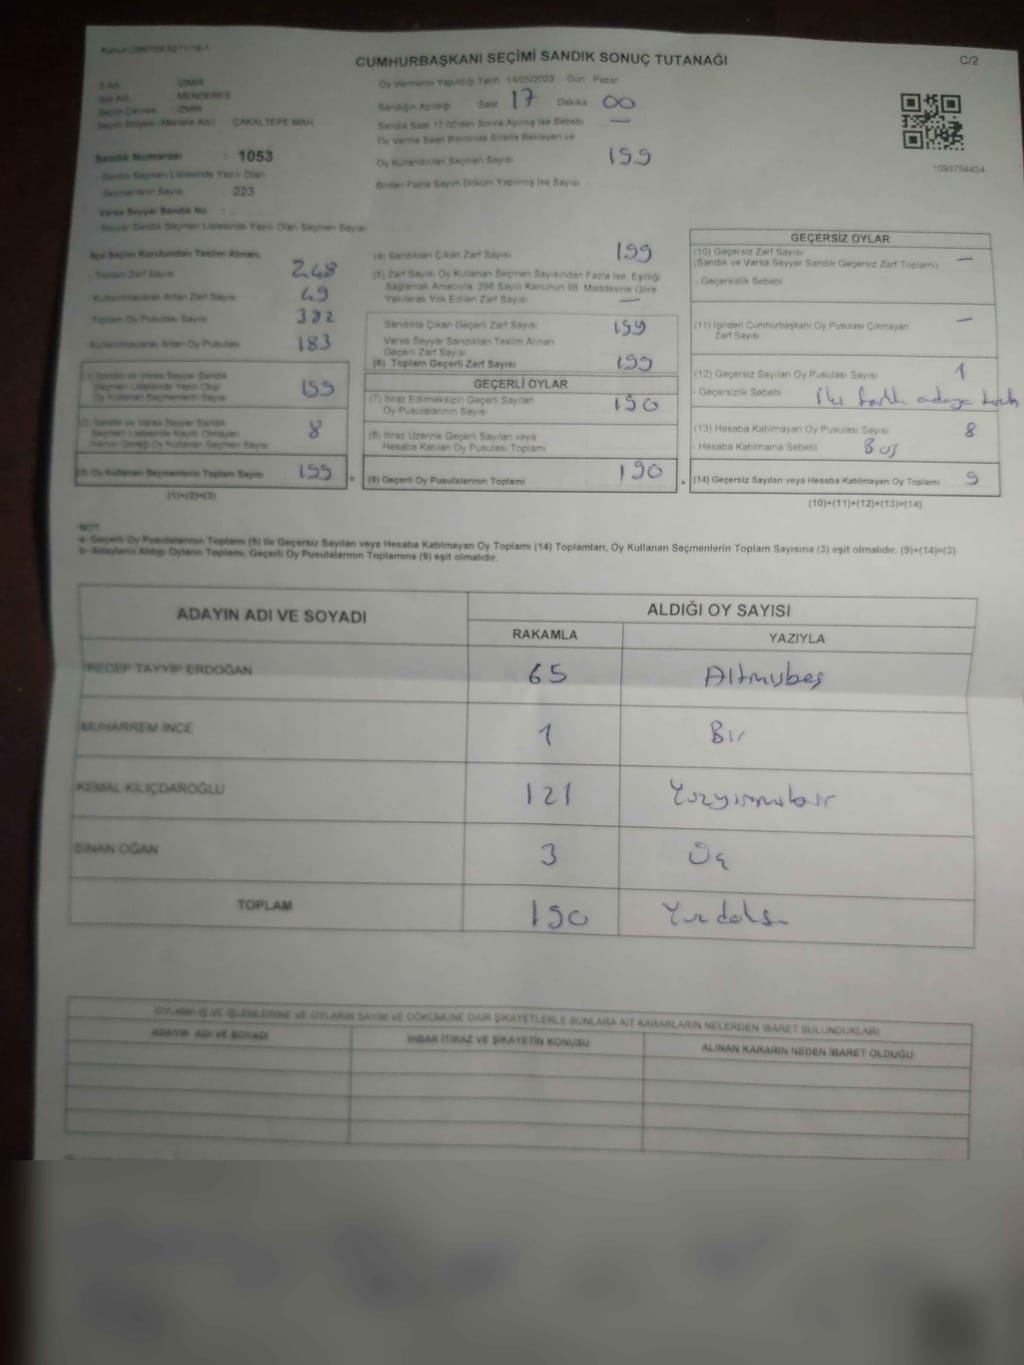 CUMHURBAŞKANI SEÇİMİ SANDIK SONUÇ TUTANAĞI
C/2
İl Adı : İZMİR
İlçe Adı : MENDERES
Seçim Çevresi : İZMİR
Seçim Bölgesi (Mahalle Adı) : ÇAKALTEPE MAH.
Sandık Numarası : 1053
Sandık Seçmen Listesinde Yazılı Olan
Seçmenlerin Sayısı : 223
Varsa Seyyar Sandık No :
Seyyar Sandık Seçmen Listesinde Yazılı Olan Seçmen Sayısı
Oy Vermenin Yapıldığı Tarih 14/05/2023 Gün Pazar
Sandığın Açıldığı Saat 17 Dakika 00
Sandık Saat 17.00'den Sonra Açılmış İse Sebebi —
Oy Verme Saati Bitiminde Sırada Bekleyen ve
Oy Kullandırılan Seçmen Sayısı 199
Birden Fazla Sayım Döküm Yapılmış İse Sayısı
1093754434
İlçe Seçim Kurulundan Teslim Alınan;
- Toplam Zarf Sayısı 248
- Kullanılmayarak Artan Zarf Sayısı 49
Toplam Oy Pusulası Sayısı 382
- Kullanılmayarak Artan Oy Pusulası 183
(1) Sandık ve Varsa Seyyar Sandık
Seçmen Listesinde Yazılı Olup
Oy Kullanan Seçmenlerin Sayısı 199
(2) Sandık ve Varsa Seyyar Sandık
Seçmen Listesinde Kayıtlı Olmayan
Kanun Gereği Oy Kullanan Seçmen Sayısı 8
(3) Oy Kullanan Seçmenlerin Toplam Sayısı 199 =
(1)+(2)=(3)
(4) Sandıktan Çıkan Zarf Sayısı 199
(5) Zarf Sayısı Oy Kullanan Seçmen Sayısından Fazla İse, Eşitliği
Sağlamak Amacıyla, 298 Sayılı Kanunun 98. Maddesine Göre
Yakılarak Yok Edilen Zarf Sayısı —
Sandıkta Çıkan Geçerli Zarf Sayısı 199
Varsa Seyyar Sandıktan Teslim Alınan
Geçerli Zarf Sayısı
(6) Toplam Geçerli Zarf Sayısı 199
GEÇERLİ OYLAR
(7) İtiraz Edilmeksizin Geçerli Sayılan
Oy Pusulalarının Sayısı 190
(8) İtiraz Üzerine Geçerli Sayılan veya
Hesaba Katılan Oy Pusulası Toplamı
(9) Geçerli Oy Pusulalarının Toplamı 190 +
GEÇERSİZ OYLAR
(10) Geçersiz Zarf Sayısı —
(Sandık ve Varsa Seyyar Sandık Geçersiz Zarf Toplamı)
- Geçersizlik Sebebi
(11) İçinden Cumhurbaşkanı Oy Pusulası Çıkmayan —
Zarf Sayısı
(12) Geçersiz Sayılan Oy Pusulası Sayısı 1
- Geçersizlik Sebebi iki farklı adaya
(13) Hesaba Katılmayan Oy Pusulası Sayısı 8
- Hesaba Katılmama Sebebi Boş
(14) Geçersiz Sayılan veya Hesaba Katılmayan Oy Toplamı 9
(10)+(11)+(12)+(13)=(14)
NOT:
a- Geçerli Oy Pusulalarının Toplamı (9) ile Geçersiz Sayılan veya Hesaba Katılmayan Oy Toplamı (14) Toplamları, Oy Kullanan Seçmenlerin Toplam Sayısına (3) eşit olmalıdır. (9)+(14)=(3)
b- Adayların Aldığı Oyların Toplamı, Geçerli Oy Pusulalarının Toplamına (9) eşit olmalıdır.
ADAYIN ADI VE SOYADI
ALDIĞI OY SAYISI
RAKAMLA YAZIYLA
RECEP TAYYİP ERDOĞAN 65 Altmışbeş
MUHARREM İNCE 1 Bir
KEMAL KILIÇDAROĞLU 121 Yüzyirmibir
SİNAN OĞAN 3 Üç
TOPLAM 190 Yüzdoksan
OYLAMA İŞ VE İŞLEMLERİNE VE OYLARIN SAYIM VE DÖKÜMÜNE DAİR ŞİKAYETLERLE BUNLARA AİT KARARLARIN NELERDEN İBARET BULUNDUKLARI
ADAYIN ADI VE SOYADI
İHBAR İTİRAZ VE ŞİKAYETİN KONUSU
ALINAN KARARIN NEDEN İBARET OLDUĞU